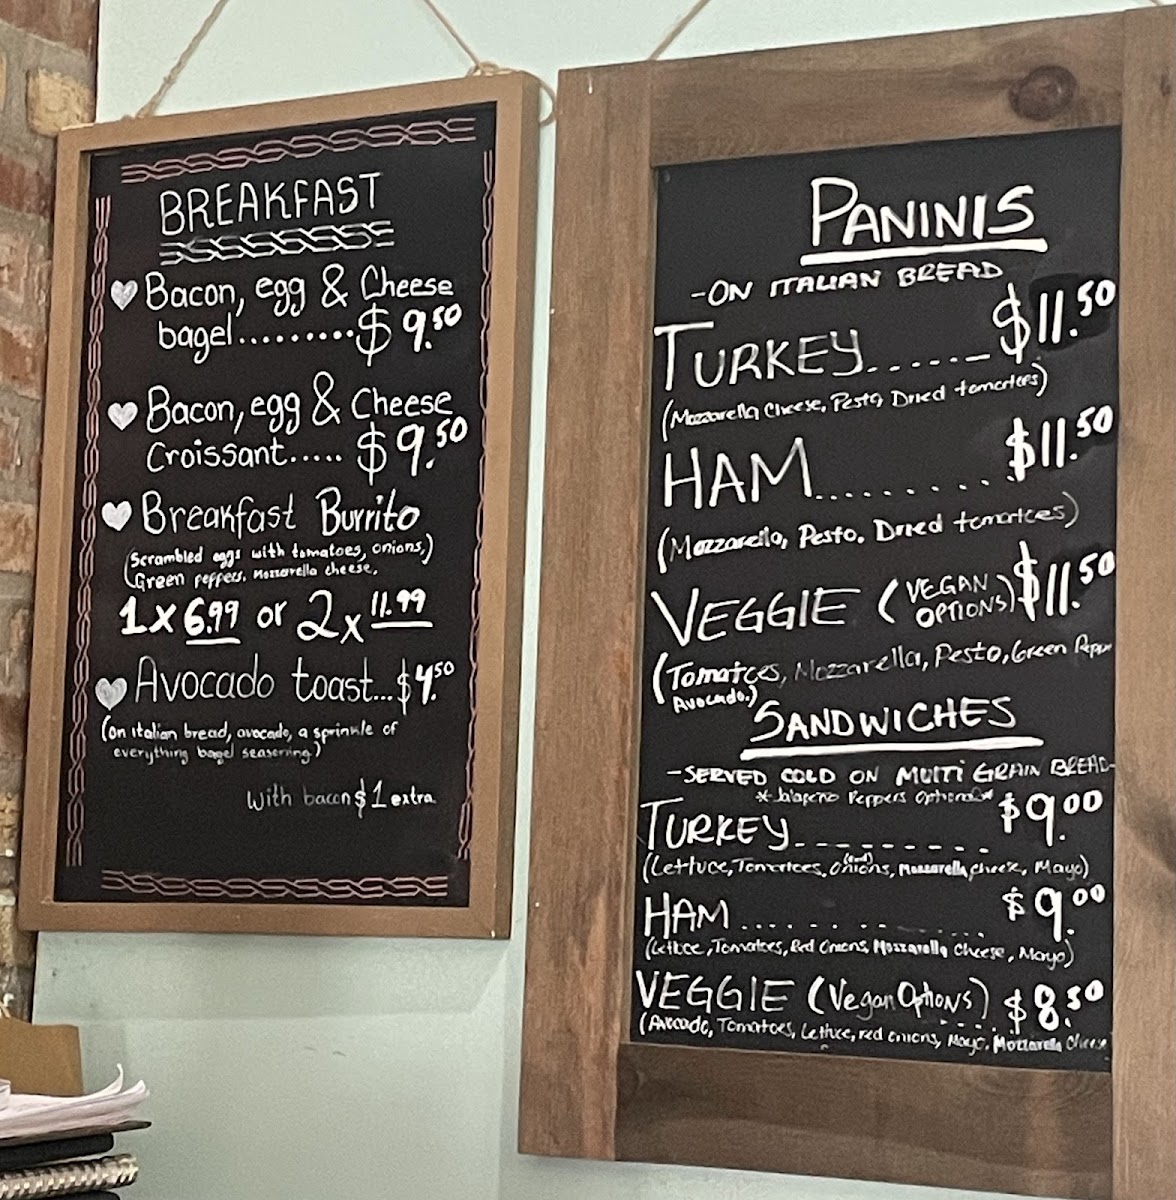 BREAKFAST
Bacon, egg & Cheese
bagel......... $9.50
Bacon, egg & Cheese
Croissant..... $9.50
Breakfast Burrito
(Scrambled eggs with tomatoes, onions,)
Green peppers. Mozzerella cheese.
1x 6.99 or 2x 11.99
Avocado toast...$4.50
(on italian bread, avocado, a sprinkle of
everything bagel seasoning.)
With bacon $1 extra
PANINIS
-ON ITALIAN BREAD
TURKEY....... $11.50
(Mozzarella Cheese, Pesto, Dried tomatoes)
HAM.......... $11.50
(Mozzarella, Pesto. Dried tomatoes)
VEGGIE (VEGAN OPTIONS) $11.50
(Tomatoes, Mozzarella, Pesto, Green Pepper
Avocado.)
SANDWICHES
-SERVED COLD ON MULTI GRAIN BREAD-
*Jalapeno Peppers Optional*
TURKEY......... $9.00
(Lettuce, Tomatoes, (red) Onions, Mozzarella cheese, Mayo)
HAM.......... $9.00
(Lettuce, Tomatoes, Red Onions, Mozzarella Cheese, Mayo)
VEGGIE (Vegan Options) .... $8.50
(Avocado, Tomatoes, Lettuce, red onions, Mayo. Mozzarella Cheese